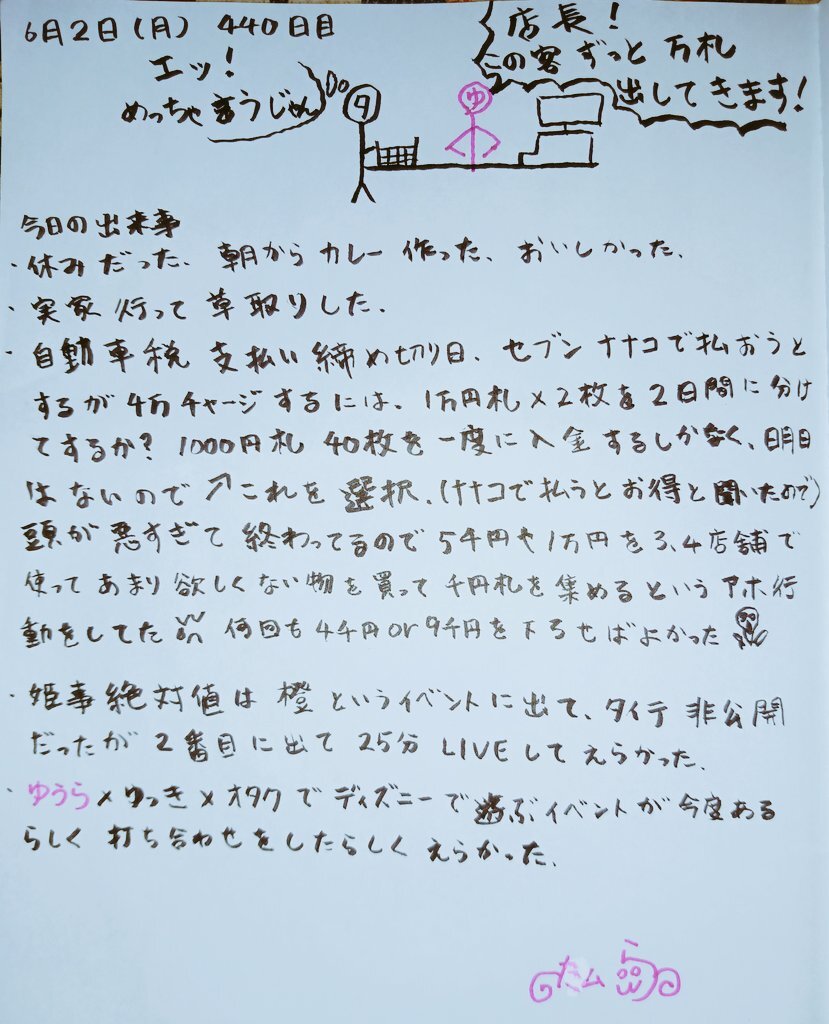 6月2日(月) 440日目
エッ!
めっちゃ言うじゃん
タ
ゆ
店長!
この客ずっと万札
出してきます!
今日の出来事
・休みだった、朝からカレー作った、おいしかった、
・実家行って草取りした、
・自動車税支払い締め切り日、セブンナナコで払おうと
するが4万チャージするには、1万円札×2枚を2日間に分け
てするか?1000円札40枚を一度に入金するしかなく、明日
はないので↗これを選択、(ナナコで払うとお得と聞いたので)
頭が悪すぎて終わってるので5千円や1万円を3、4店舗で
使ってあまり欲しくない物を買って千円札を集めるというアホ行
動をしてた 何回も4千円or9千円を下ろせばよかった
・姫事絶対値は橙というイベントに出て、タイテ非公開
だったが2番目に出て25分LIVEしてえらかった、
・ゆうら×ゆっき×オタクでディズニーで遊ぶイベントが今度ある
らしく打ち合わせをしたらしくえらかった、
たム